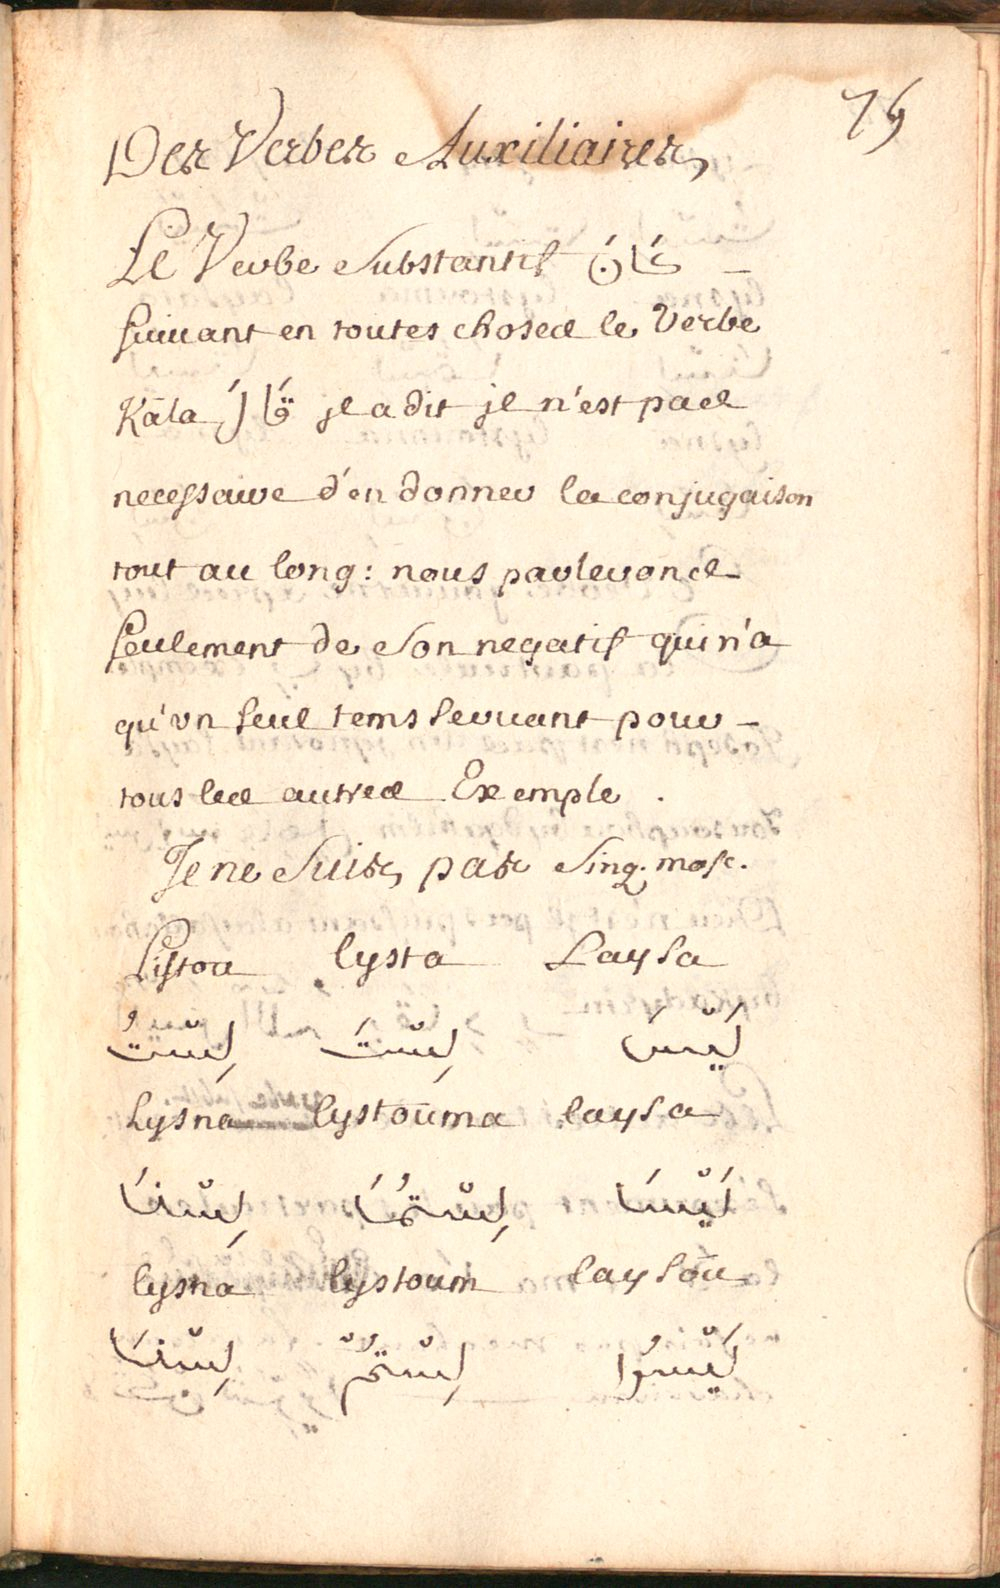 75
Des Verbes Auxiliaires,
Le Verbe substantif كَانَ –
suivant en toutes choses le Verbe
Kāla قَالَ jl a dit jl n'est pas
necessaire d'en donner la conjugaison
tout au long: nous parlerons
seulement de son negatif qui n'a
qu'vn seul tems seruant pour –
tous les autres Exemple .
Je ne suis, pas sing. masc.
Listou lysta Laysa
لِسْتُ لِسْتَ لَيْسَ
Lysna lystoūma laysa
لِسْنَا لِسْتُمَا لَيْسَا
lysna lystoum laysoū
لِسْنَا لِسْتُمْ لَيْسُوا